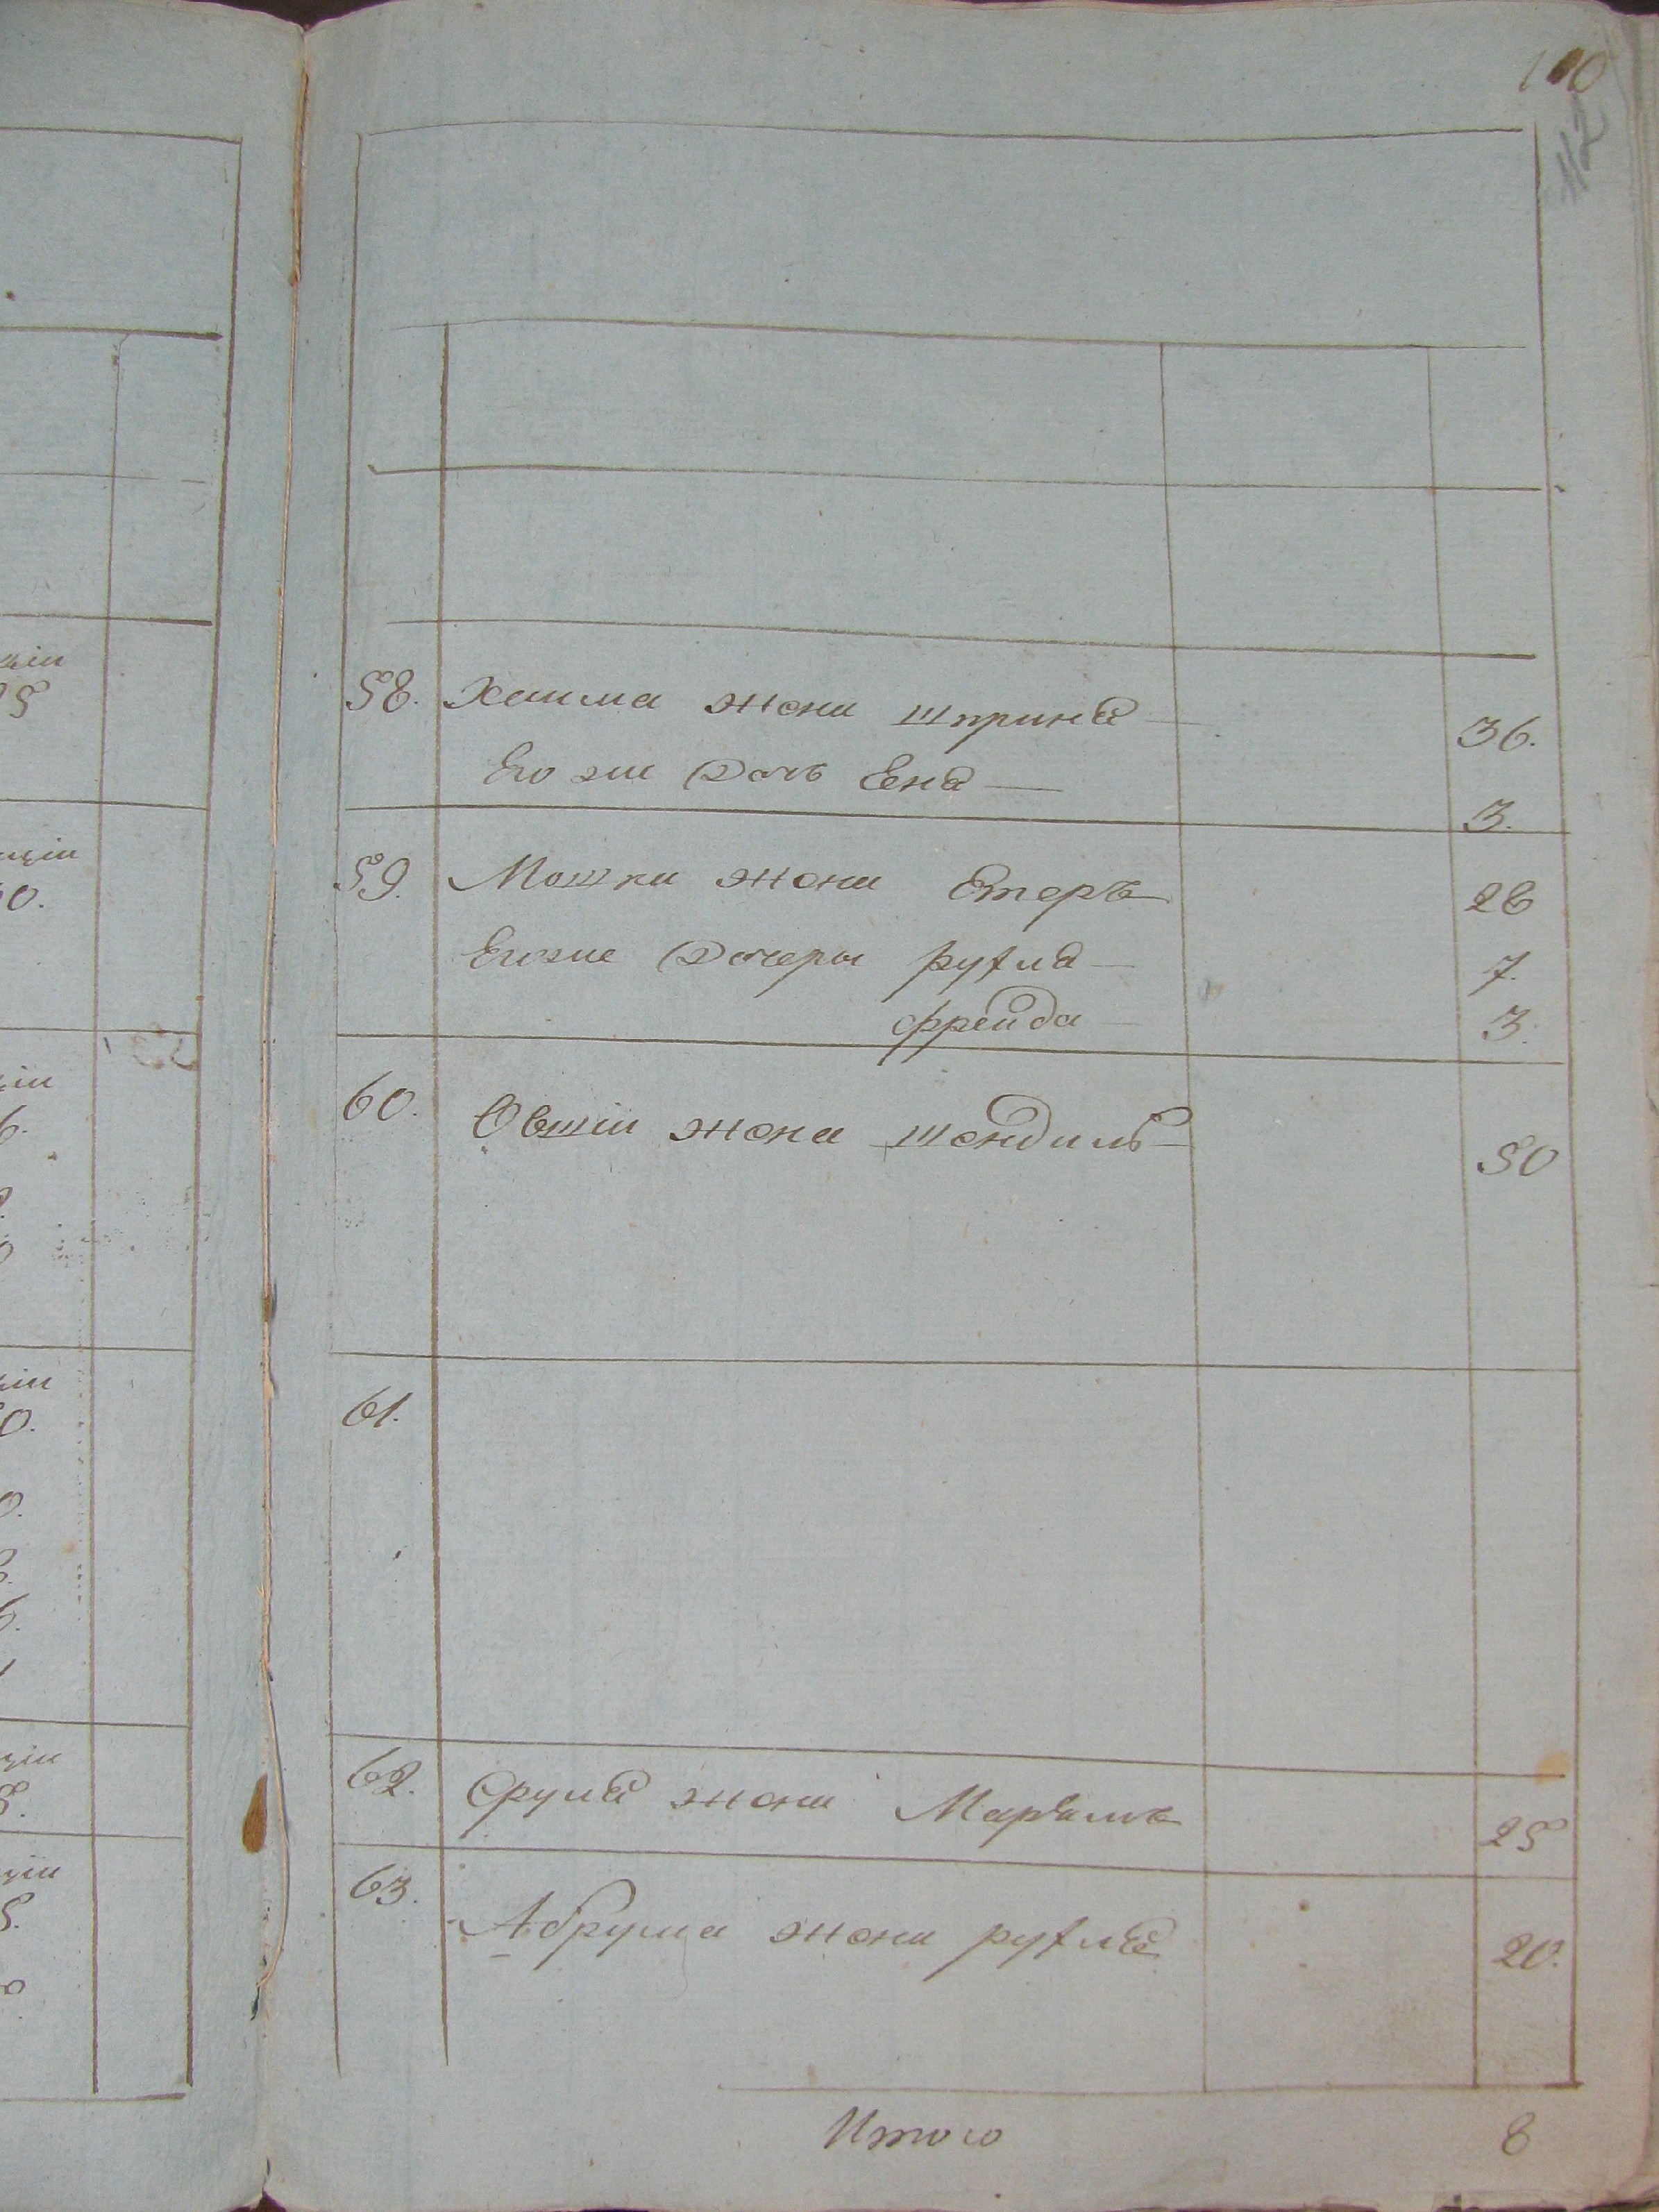 110
112
58. Хаима жона шпринa 36.
Его же дочь Ена 3.
59. Мошки жона Етерь 28
Егоже дочеры рухла 7.
фрейда 3.
60. Овшiи жона шендиль 50
61.
62. Сруля жона Маръямъ 25
63. Абрума жона рухля 20.
Итого 8